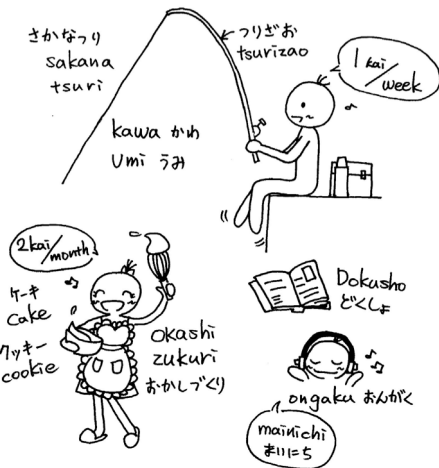 さかなつり
sakana
tsuri
つりざお
tsurizao
1 kai
/week
kawa かわ
Umi うみ
2kai/month
ケーキ
Cake
クッキー
cookie
Okashi
zukuri
おかしづくり
Dokusho
どくしょ
ongaku おんがく
mainichi
まいにち